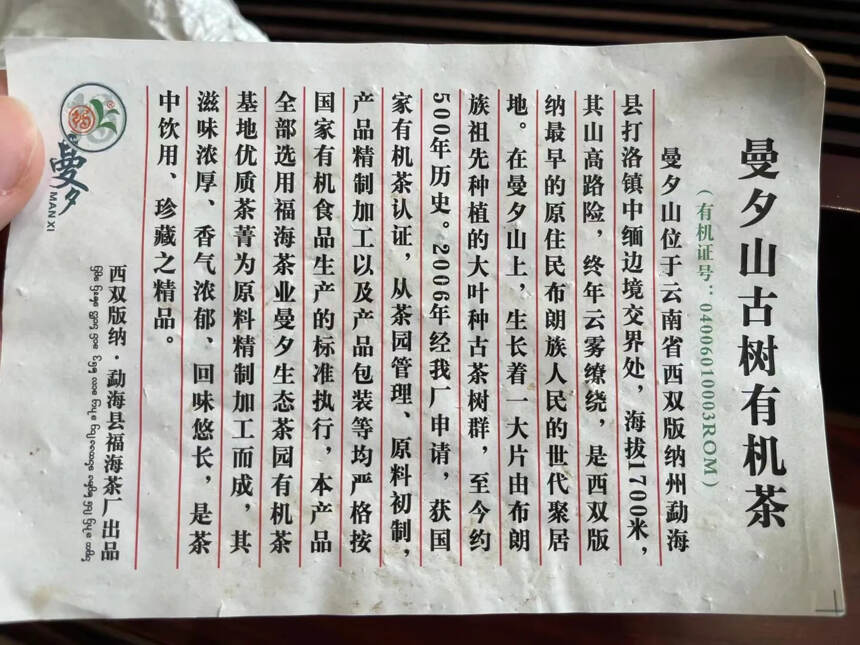 曼夕山古树有机茶
(有机证号：04006010003ROM)
曼夕山位于云南省西双版纳州勐海
县打洛镇中缅边境交界处，海拔1700米，
其山高路险，终年云雾缭绕，是西双版
纳最早的原住民布朗族人民的世代聚居
地。在曼夕山上，生长着一大片由布朗
族祖先种植的大叶种古茶树群，至今约
500年历史。2006年经我厂申请，获国
家有机茶认证，从茶园管理、原料初制，
产品精制加工以及产品包装等均严格按
国家有机食品生产的标准执行，本产品
全部选用福海茶业曼夕生态茶园有机茶
基地优质茶菁为原料精制加工而成，其
滋味浓厚、香气浓郁、回味悠长，是茶
中饮用、珍藏之精品。
西双版纳·勐海县福海茶厂出品
曼夕
MAN XI